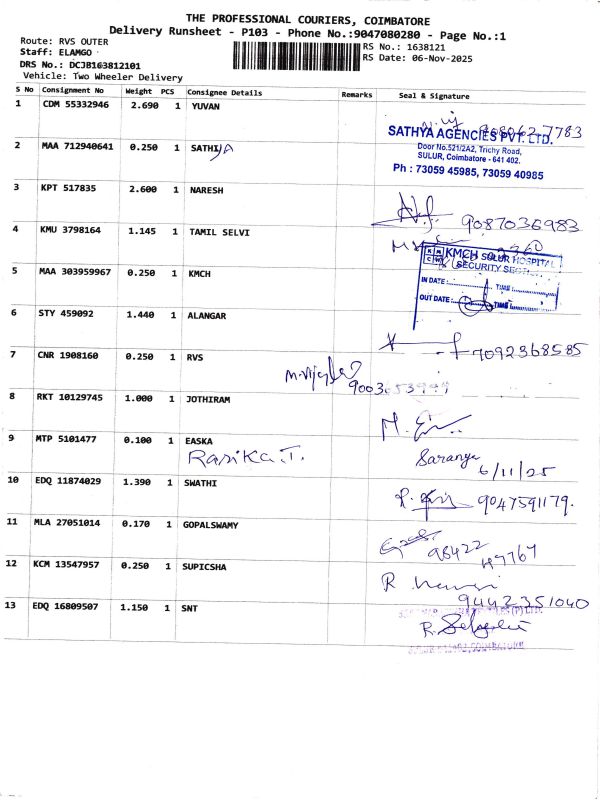 THE PROFESSIONAL COURIERS, COIMBATORE
Delivery Runsheet - P103 - Phone No.:9047080280 - Page No.:1
Route: RVS OUTER
RS No.: 1638121
Staff: ELAMGO
RS Date: 06-Nov-2025
DRS No.: DCJB163812101
Vehicle: Two Wheeler Delivery
S No Consignment No Weight PCS Consignee Details Remarks Seal & Signature
1 CDM 55332946 2.690 1 YUVAN
9080627783
SATHYA AGENCIES PVT. LTD.
Door No.521/2A2, Trichy Road,
SULUR, Coimbatore - 641 402.
Ph : 73059 45985, 73059 40985
2 MAA 712940641 0.250 1 SATHIYA
3 KPT 517835 2.600 1 NARESH
9087036983
4 KMU 3798164 1.145 1 TAMIL SELVI
KMCH SULUR HOSPITAL
SECURITY SECTION
IN DATE : TIME :
OUT DATE : TIME :
5 MAA 303959967 0.250 1 KMCH
6 STY 459092 1.440 1 ALANGAR
7092368585
7 CNR 1908160 0.250 1 RVS
8 RKT 10129745 1.000 1 JOTHIRAM
9 MTP 5101477 0.100 1 EASKA
Rasika.T.
Saranya
6/11/25
10 EDQ 11874029 1.390 1 SWATHI
9047591179.
11 MLA 27051014 0.170 1 GOPALSWAMY
98422
49767
12 KCM 13547957 0.250 1 SUPICSHA
9442351040
13 EDQ 16809507 1.150 1 SNT